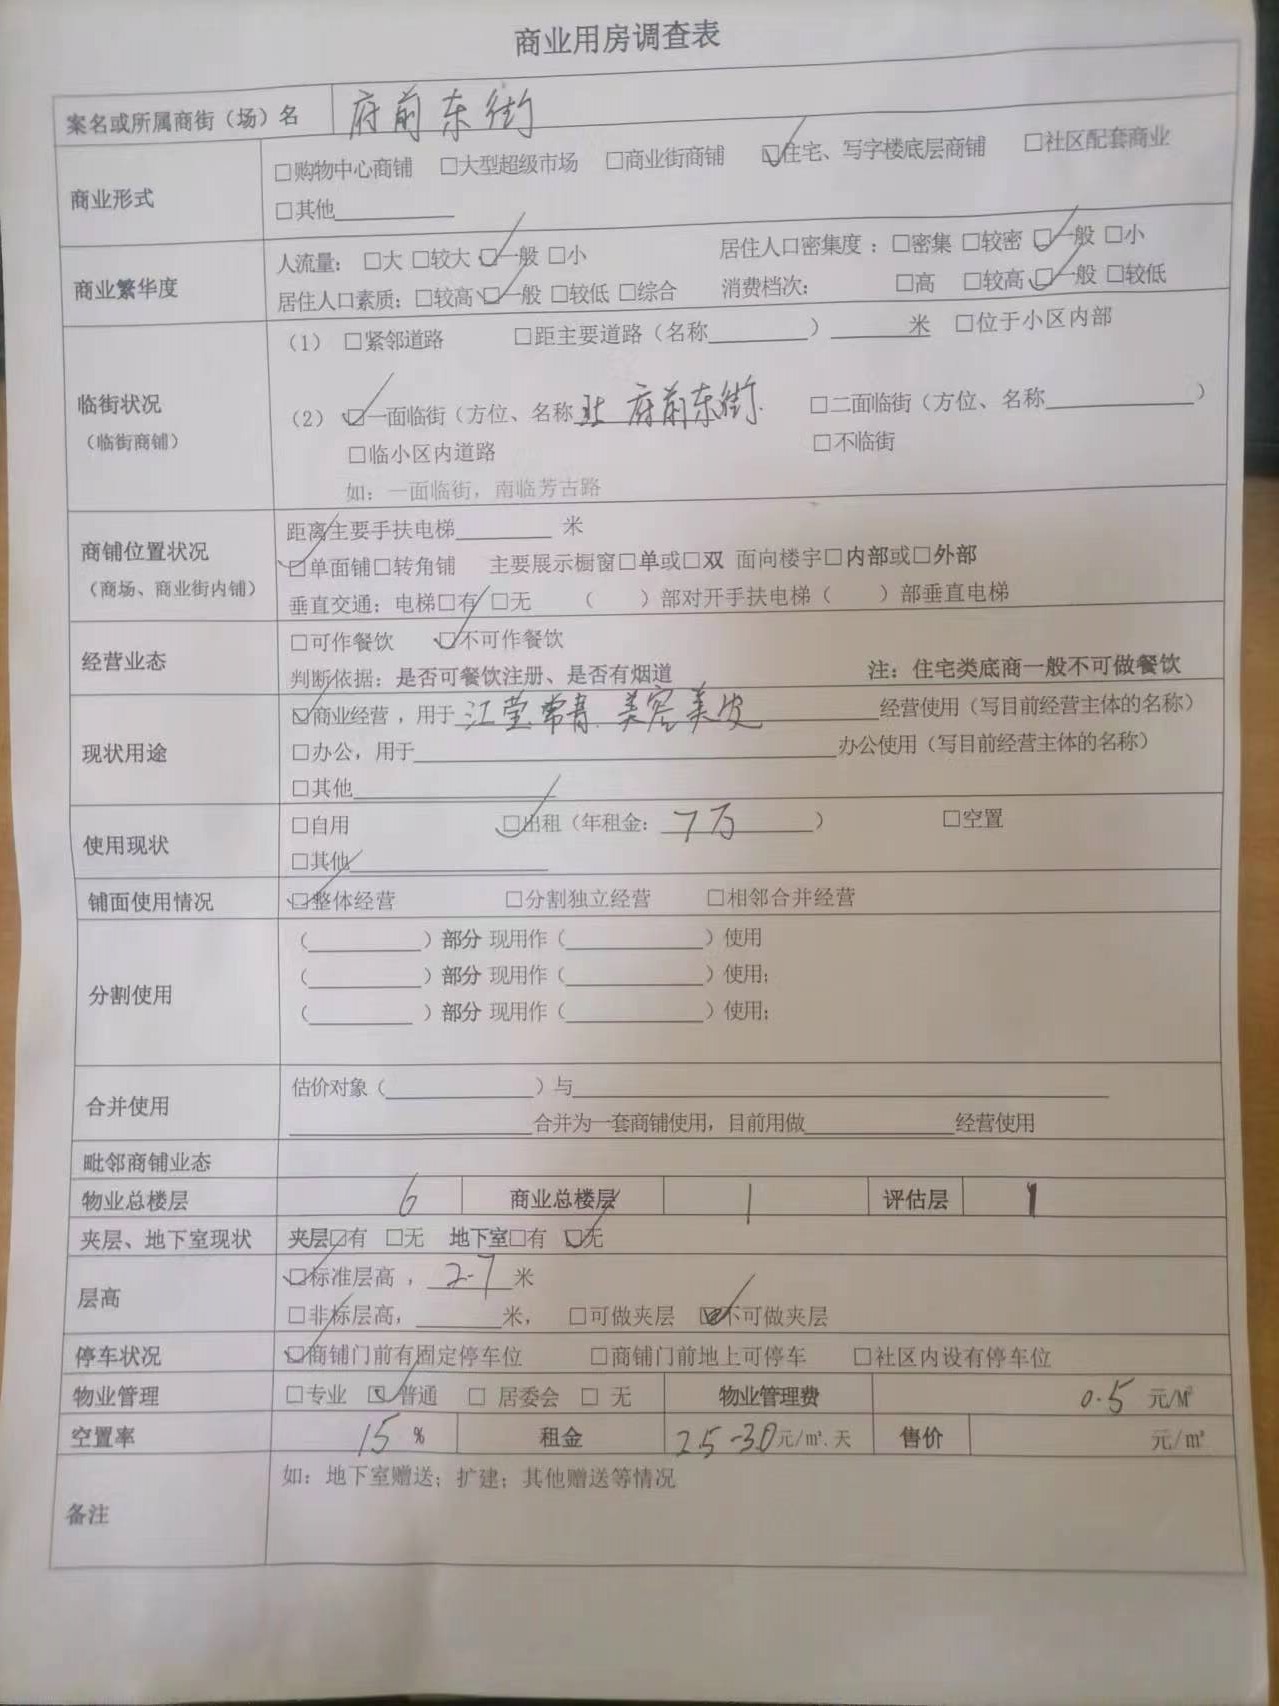 商业用房调查表
案名或所属商街（场）名 府前东街
商业形式 □购物中心商铺 □大型超级市场 □商业街商铺 ☑住宅、写字楼底层商铺 □社区配套商业
□其他
商业繁华度 人流量: □大 □较大 ☑一般 □小 居住人口密集度： □密集 □较密 ☑一般 □小
居住人口素质: □较高 ☑一般 □较低 □综合 消费档次: □高 □较高 ☑一般 □较低
临街状况 （1） □紧邻道路 □距主要道路（名称________）________米 □位于小区内部
（临街商铺） （2） ☑一面临街（方位、名称 北 府前东街 □二面临街（方位、名称________）
□临小区内道路 □不临街
如：一面临街，南临芳古路
商铺位置状况 距离主要手扶电梯________ 米
（商场、商业街内铺） ☑单面铺□转角铺 主要展示橱窗□单或□双 面向楼宇□内部或□外部
垂直交通：电梯□有 ☑无 （ ）部对开手扶电梯（ ）部垂直电梯
经营业态 □可作餐饮 ☑不可作餐饮
判断依据：是否可餐饮注册、是否有烟道 注：住宅类底商一般不可做餐饮
现状用途 ☑商业经营，用于 江莹.常青.美容美皮 经营使用（写目前经营主体的名称）
□办公，用于________办公使用（写目前经营主体的名称）
□其他________
使用现状 □自用 ☑出租（年租金: 7万 ） □空置
□其他________
铺面使用情况 ☑整体经营 □分割独立经营 □相邻合并经营
分割使用 （________）部分 现用作（________）使用
（________）部分 现用作（________）使用;
（________）部分 现用作（________）使用;
合并使用 估价对象（________）与________
________合并为一套商铺使用，目前用做________经营使用
毗邻商铺业态
物业总楼层 6 商业总楼层 1 评估层 1
夹层、地下室现状 夹层□有 □无 地下室□有 ☑无
层高 ☑标准层高， 2.7 米
□非标层高，________米， □可做夹层 ☑不可做夹层
停车状况 ☑商铺门前有固定停车位 □商铺门前地上可停车 □社区内设有停车位
物业管理 □专业 ☑普通 □ 居委会 □ 无 物业管理费 0.5 元/M²
空置率 15 % 租金 25-30元/㎡.天 售价 元/㎡
备注 如：地下室赠送；扩建；其他赠送等情况